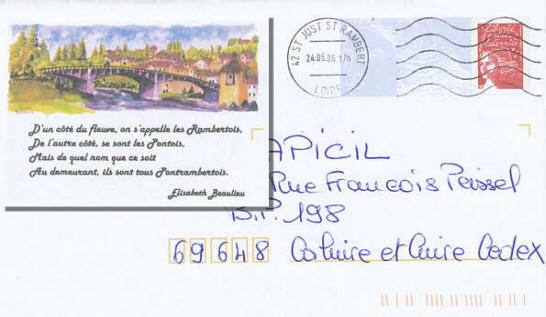 D'un côté du fleuve, on s'appelle les Rambertois,
De l'autre côté, se sont les Pontois,
Mais de quel nom que ce soit
Au demeurant, ils sont tous Pontrambertois.
Elisabeth Beaulieu
42 ST JUST ST RAMBERT
24.05.06 17h
LOIRE
Liberté
APICIL
Rue Francois Peissel
B.P. 198
69648 Caluire et Cuire Cedex